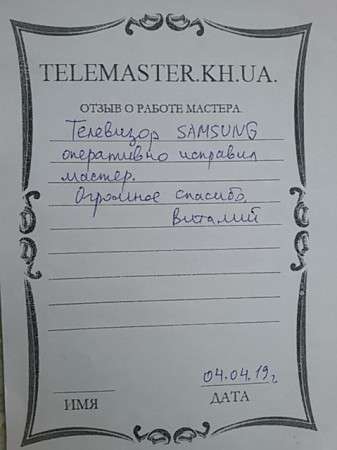 TELEMASTER.KH.UA.
ОТЗЫВ О РАБОТЕ МАСТЕРА.
Телевизор SAMSUNG
оперативно исправил
мастер.
Огромное спасибо.
Виталий
04.04.19г
ИМЯ ДАТА